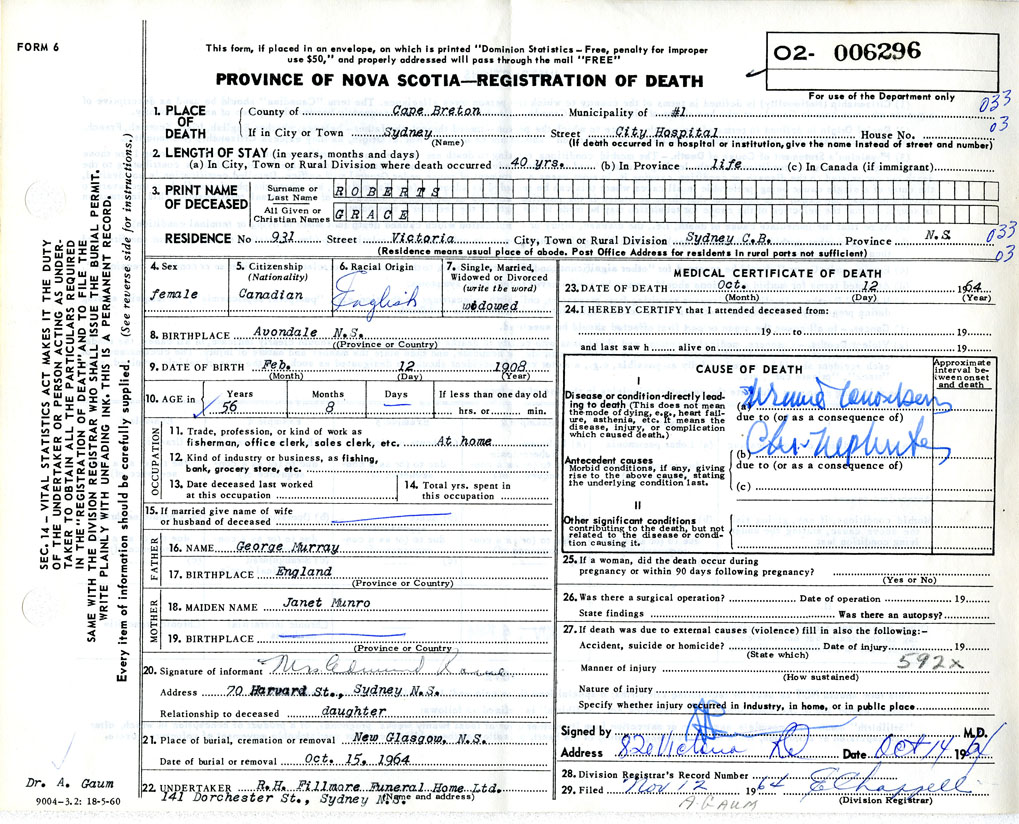 FORM 6
This form, if placed in an envelope, on which is printed "Dominion Statistics – Free, penalty for improper
use $50," and properly addressed will pass through the mail "FREE"
PROVINCE OF NOVA SCOTIA—REGISTRATION OF DEATH
02- 006296
For use of the Department only
033
03
SEC. 14 – VITAL STATISTICS ACT MAKES IT THE DUTY
OF THE UNDERTAKER OR PERSON ACTING AS UNDER-
TAKER TO OBTAIN ALL THE PARTICULARS REQUIRED
IN THE "REGISTRATION OF DEATH" AND TO FILE THE
SAME WITH THE DIVISION REGISTRAR WHO SHALL ISSUE THE BURIAL PERMIT.
WRITE PLAINLY WITH UNFADING INK. THIS IS A PERMANENT RECORD.
Every item of information should be carefully supplied. (See reverse side for instructions.)
1. PLACE OF DEATH
County of Cape Breton Municipality of #1
If in City or Town Sydney Street City Hospital House No.
(Name) (If death occurred in a hospital or institution, give the name instead of street and number)
2. LENGTH OF STAY (in years, months and days)
(a) In City, Town or Rural Division where death occurred 40 yrs. (b) In Province life (c) In Canada (if immigrant)
3. PRINT NAME OF DECEASED
Surname or Last Name ROBERTS
All Given or Christian Names GRACE
RESIDENCE No 931 Street Victoria City, Town or Rural Division Sydney C.B. Province N.S.
033
03
(Residence means usual place of abode. Post Office Address for residents in rural parts not sufficient)
4. Sex female
5. Citizenship (Nationality) Canadian
6. Racial Origin English
7. Single, Married, Widowed or Divorced (write the word) widowed
8. BIRTHPLACE Avondale N.S.
(Province or Country)
9. DATE OF BIRTH Feb. 12 1908
(Month) (Day) (Year)
10. AGE in Years 56 Months 8 Days If less than one day old hrs. or min.
OCCUPATION
11. Trade, profession, or kind of work as
fisherman, office clerk, sales clerk, etc. At home
12. Kind of industry or business, as fishing,
bank, grocery store, etc.
13. Date deceased last worked
at this occupation
14. Total yrs. spent in
this occupation
15. If married give name of wife
or husband of deceased
FATHER
16. NAME George Murray
17. BIRTHPLACE England
(Province or Country)
MOTHER
18. MAIDEN NAME Janet Munro
19. BIRTHPLACE
(Province or Country
20. Signature of informant Mrs Edmund
Address 70 Harvard St., Sydney N.S.
Relationship to deceased daughter
21. Place of burial, cremation or removal New Glasgow, N.S.
Date of burial or removal Oct. 15. 1964
22. UNDERTAKER R.H. Fillmore Funeral Home Ltd.
141 Dorchester St., Sydney N.S.
(Name and address)
Dr. A. Gaum
9004–3.2: 18-5-60
MEDICAL CERTIFICATE OF DEATH
23. DATE OF DEATH Oct. 12 1964
(Month) (Day) (Year)
24. I HEREBY CERTIFY that I attended deceased from:
19 to 19
and last saw h alive on 19
CAUSE OF DEATH
Approximate interval between onset and death
I
Disease or condition directly lead-
ing to death (This does not mean
the mode of dying, e.g., heart fail-
ure, asthenia, etc. It means the
disease, injury, or complication
which caused death.)
(a)
due to (or as a consequence of)
Antecedent causes
Morbid conditions, if any, giving
rise to the above cause, stating
the underlying condition last.
(b) Chr. Nephritis
due to (or as a consequence of)
(c)
II
Other significant conditions
contributing to the death, but not
related to the disease or condi-
tion causing it.
25. If a woman, did the death occur during
pregnancy or within 90 days following pregnancy?
(Yes or No)
26. Was there a surgical operation? Date of operation 19
State findings Was there an autopsy?
27. If death was due to external causes (violence) fill in also the following:–
Accident, suicide or homicide? Date of injury 19
(State which)
592x
Manner of injury
(How sustained)
Nature of injury
Specify whether injury occurred in industry, in home, or in public place
Signed by M.D.
Address 82 Victoria Rd Date Oct 14 1964
28. Division Registrar's Record Number
29. Filed Nov 12 1964 E Chappell
(Division Registrar)
A. GAUM